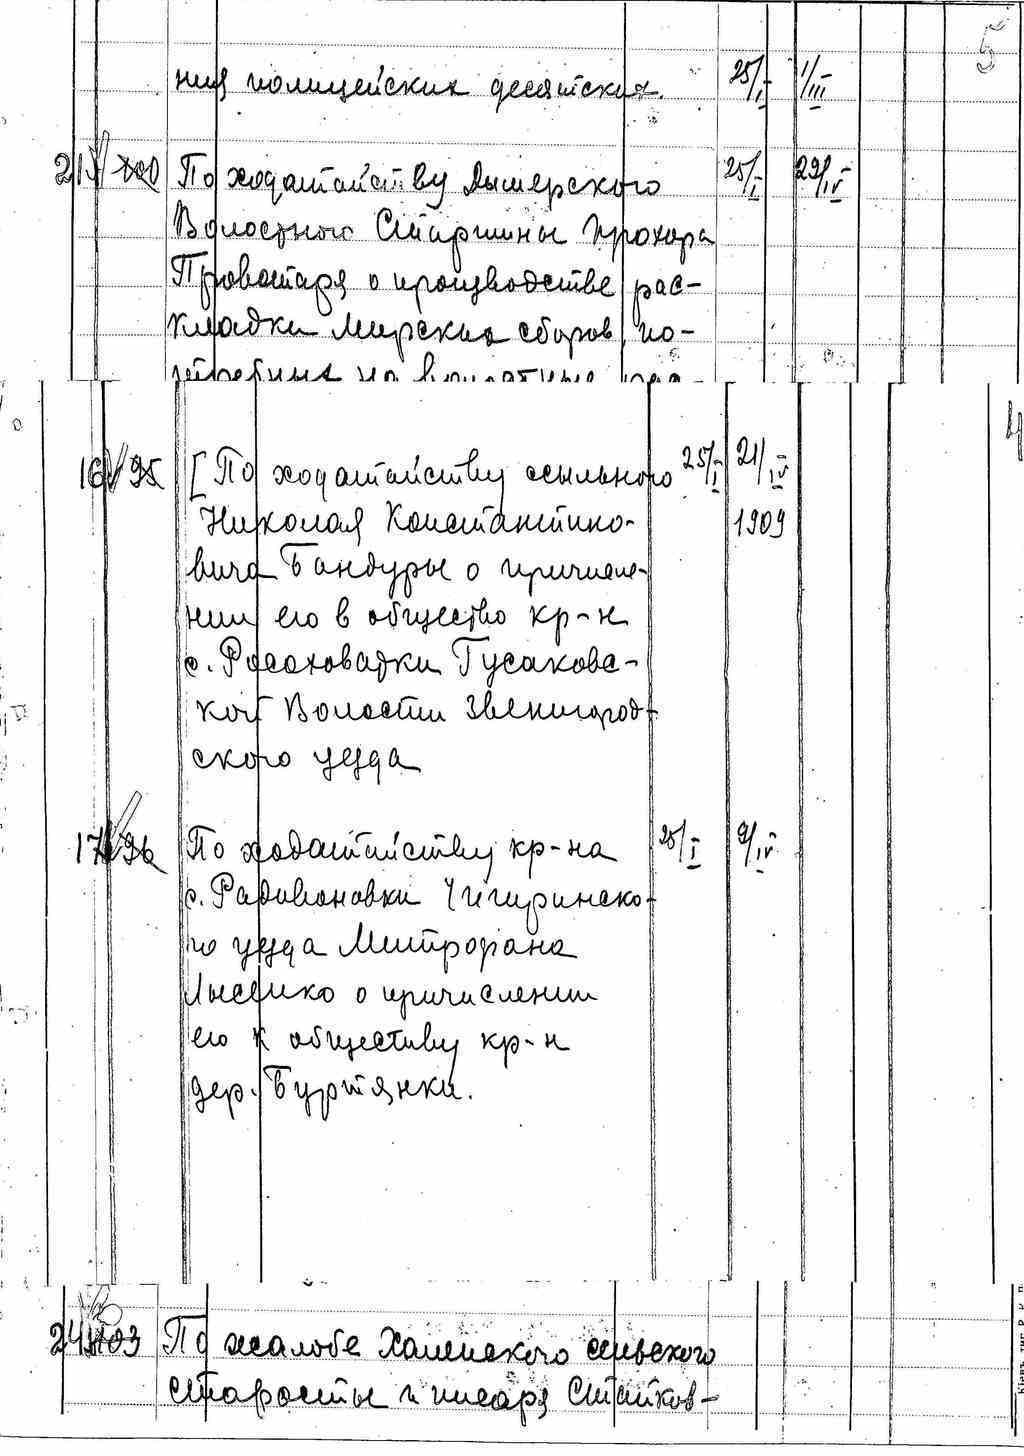 5
ния полицейских десятских. 25/I 1/III
21 100 По ходатайству Дымерского 25/I 29/IV
Волостного Старшины Прохора
Провотаря о производстве рас-
кладки мирских сборов, по-
требных на волостные
4
16 95 [По ходатайству ссыльного 25/I 21/IV
Николая Константино- 1909
вича Бандуры о причисле-
нии его в общество кр-н
с. Росоховатки Гусаковс-
кой Волости Звенигород-
ского уезда
17 96 По ходатайству кр-на 25/I 9/IV
с. Радивоновки Чигиринско-
го уезда Митрофана
Лысенко о причислении
его к обществу кр-н
дер. Буртянки.
24 103 По жалобе Халепского сельского
старосты и писаря Стайков-